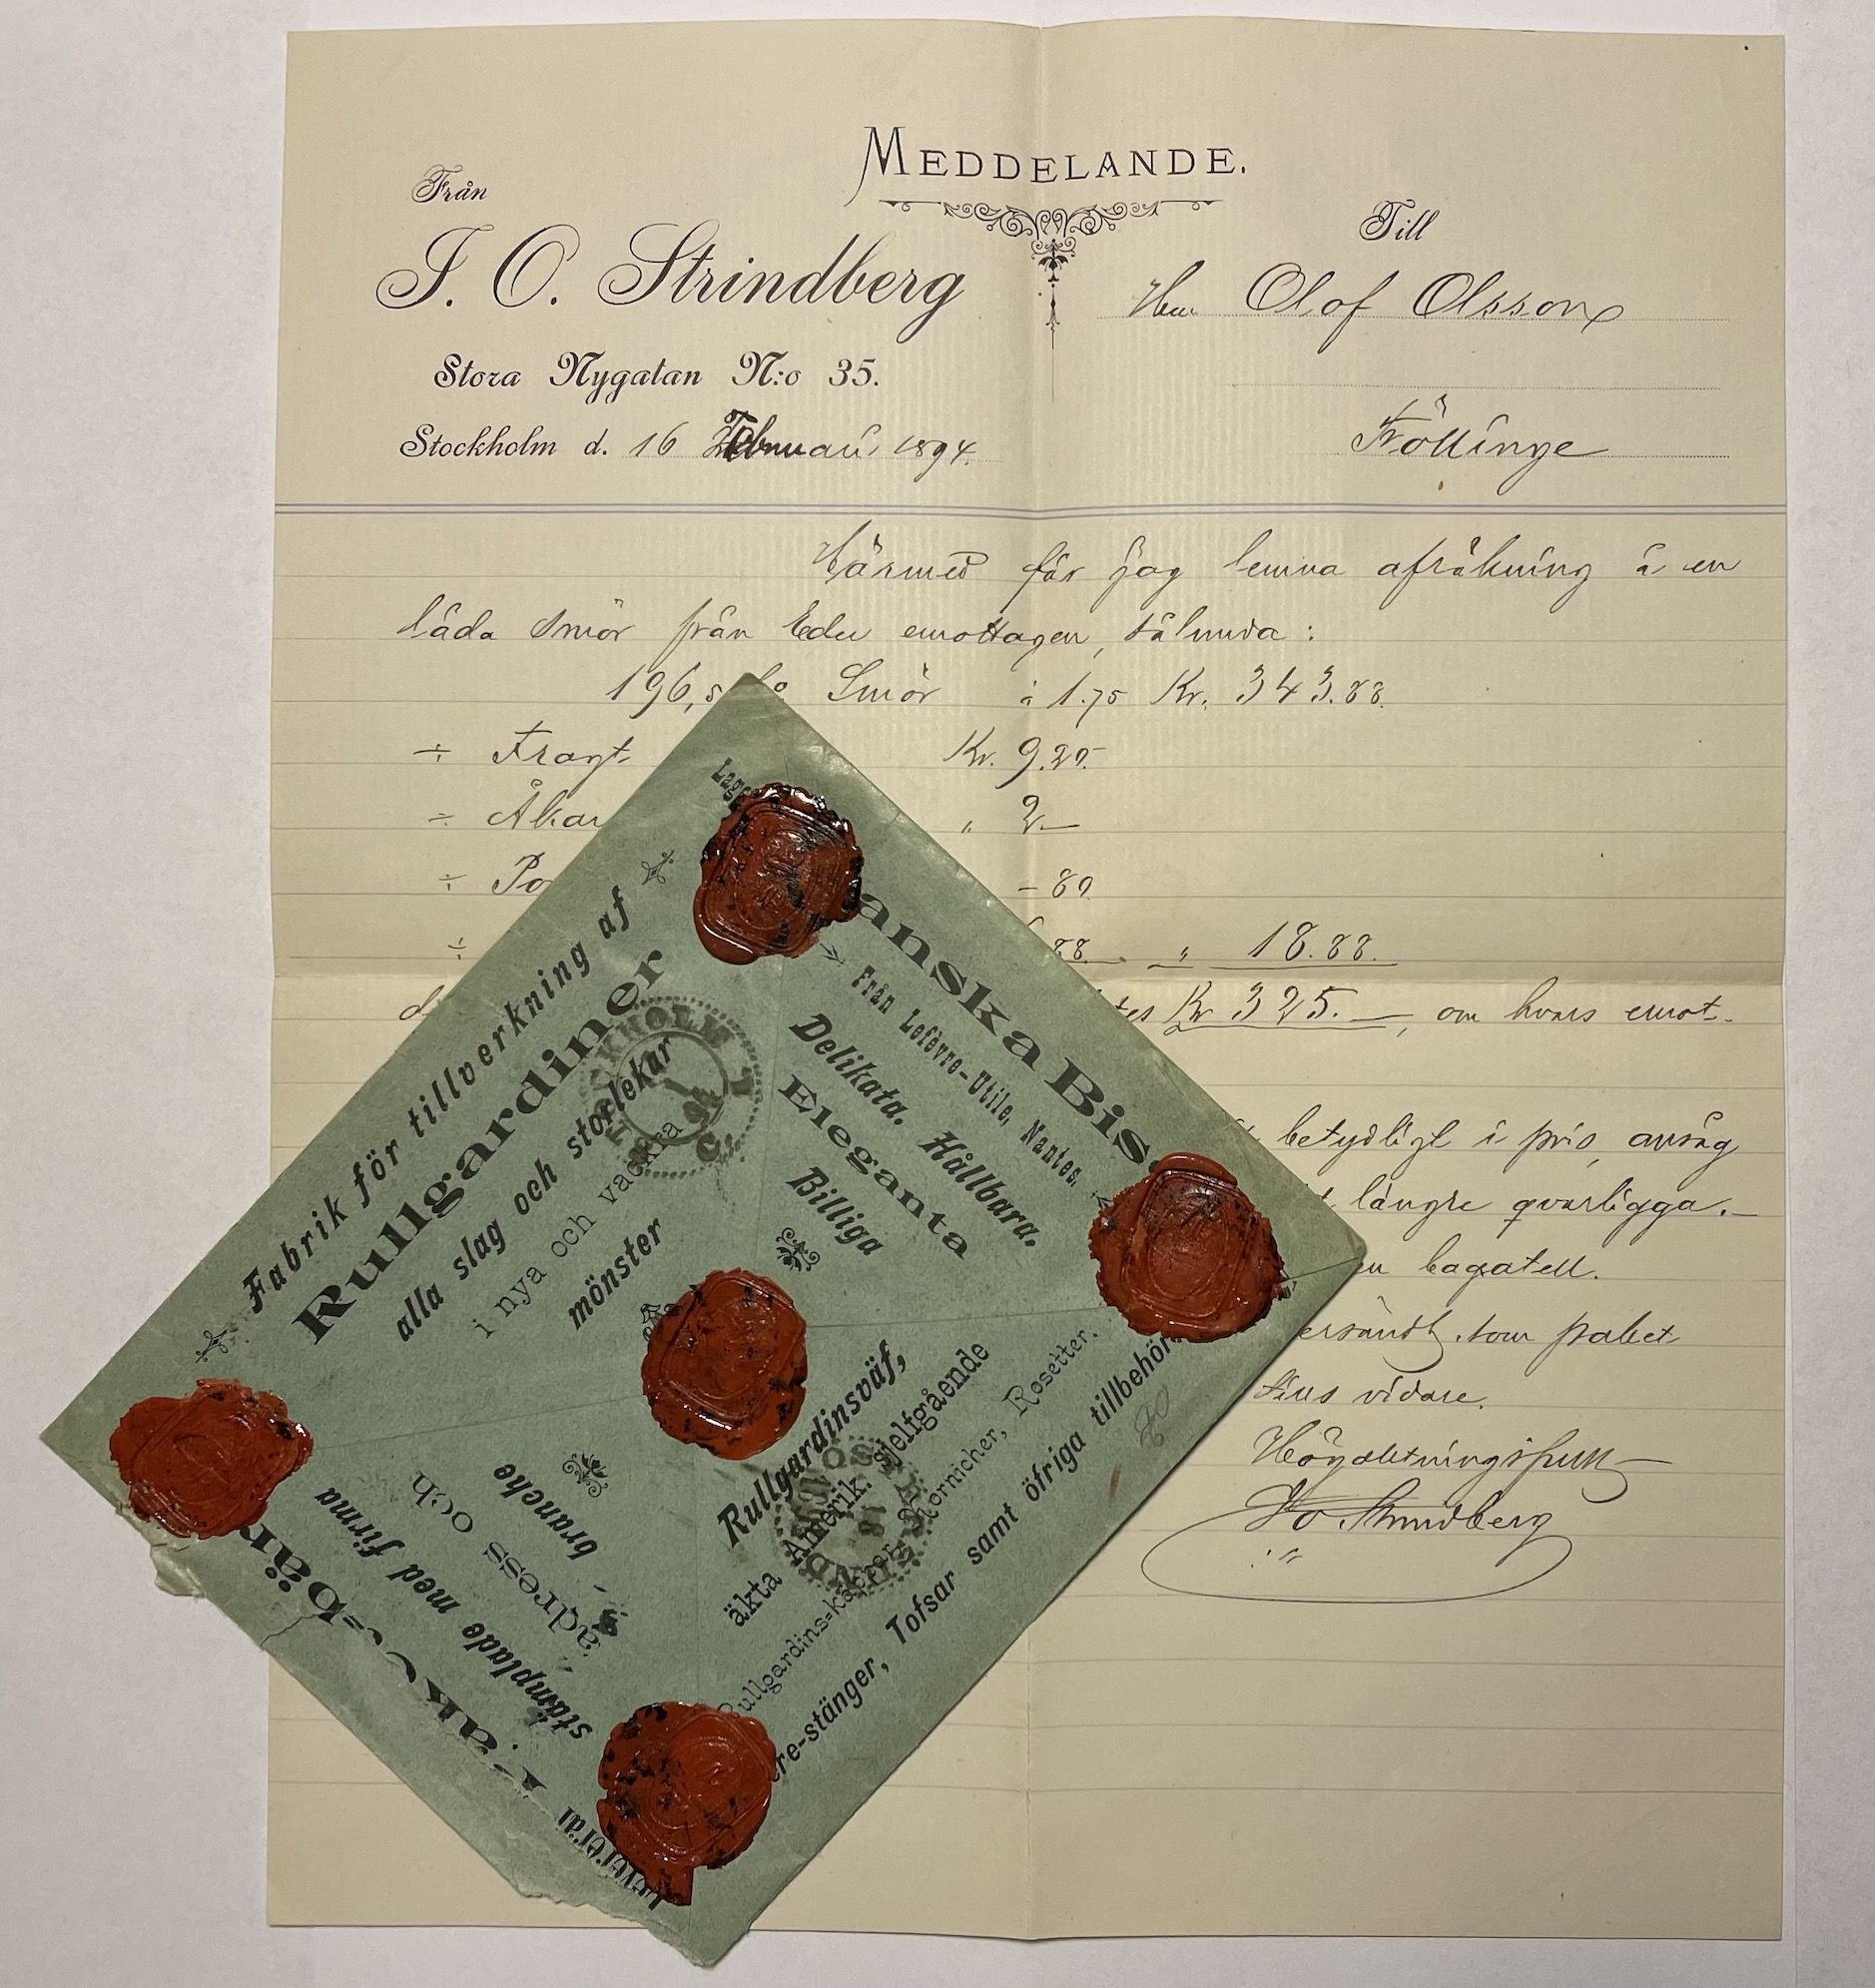 MEDDELANDE.
Från
J. O. Strindberg
Stora Nygatan N:o 35.
Stockholm d. 16 Februari 1894.
Till
Herr Olof Olsson
Föllinge
Härmed får jag lemna afräkning å en
låda smör från Eder emottagen, sålunda:
196,5 ko Smör à 1.75 Kr. 343.88.
÷ Fragt Kr. 9.20.
÷ Åkar " 2—
÷ Po — 80.
÷ 88. " 18.88.
Kr 325.—, om hvars emot-
betydligt i pris, ansåg
längre qvarligga.—
bagatell.
som paket
vidare.
Högaktningsfullt
J O Strindberg
Fabrik för tillverkning af
Rullgardiner
alla slag och storlekar
i nya och vackra
mönster
Lage
anska Bis
Från Lefèvre-Utile, Nantes,
Delikata. Hållbara.
Eleganta
Billiga
Rullgardinsväf,
äkta Amerik. sjelfgående
Rullgardins-käppar, Kornicher, Rosetter.
re-stänger, Tofsar samt öfriga tillbehör
stämplade med firma
adress och
branche
STOCKHOLM